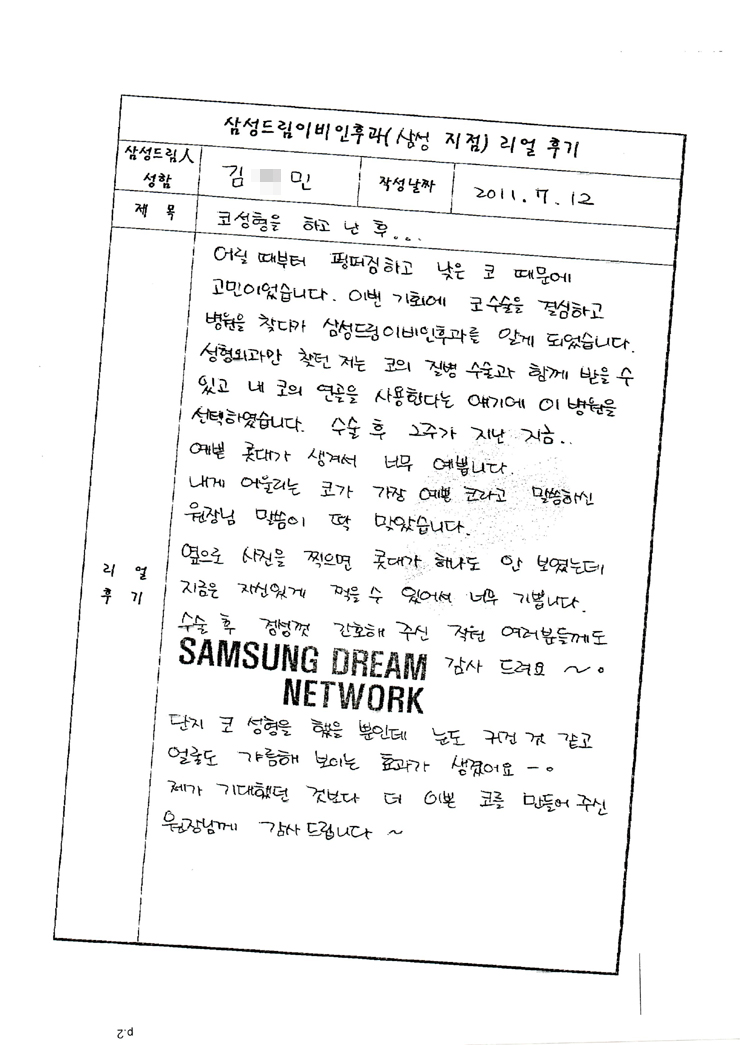 삼성드림이비인후과(삼성 지점) 리얼 후기
삼성드림人
성함
김 민
작성날짜
2011. 7. 12
제 목
코성형을 하고 난 후...
어릴 때부터 펑퍼짐하고 낮은 코 때문에
고민이었습니다. 이번 기회에 코수술을 결심하고
병원을 찾다가 삼성드림이비인후과를 알게 되었습니다.
성형외과만 찾던 저는 코의 질병 수술과 함께 받을 수
있고 내 코의 연골을 사용한다는 얘기에 이 병원을
선택하였습니다. 수술 후 2주가 지난 지금..
예쁜 콧대가 생겨서 너무 예쁩니다.
내게 어울리는 코가 가장 예쁜 코라고 말씀하신
원장님 말씀이 딱 맞았습니다.
옆으로 사진을 찍으면 콧대가 하나도 안 보였는데
지금은 자신있게 찍을 수 있어서 너무 기쁩니다.
수술 후 정성껏 간호해 주신 직원 여러분들께도
감사 드려요 ~。
SAMSUNG DREAM
NETWORK
단지 코 성형을 했을 뿐인데 눈도 커진 것 같고
얼굴도 갸름해 보이는 효과가 생겼어요 ~。
제가 기대했던 것보다 더 이쁜 코를 만들어 주신
원장님께 감사 드립니다 ~
리 얼
후 기
p.2